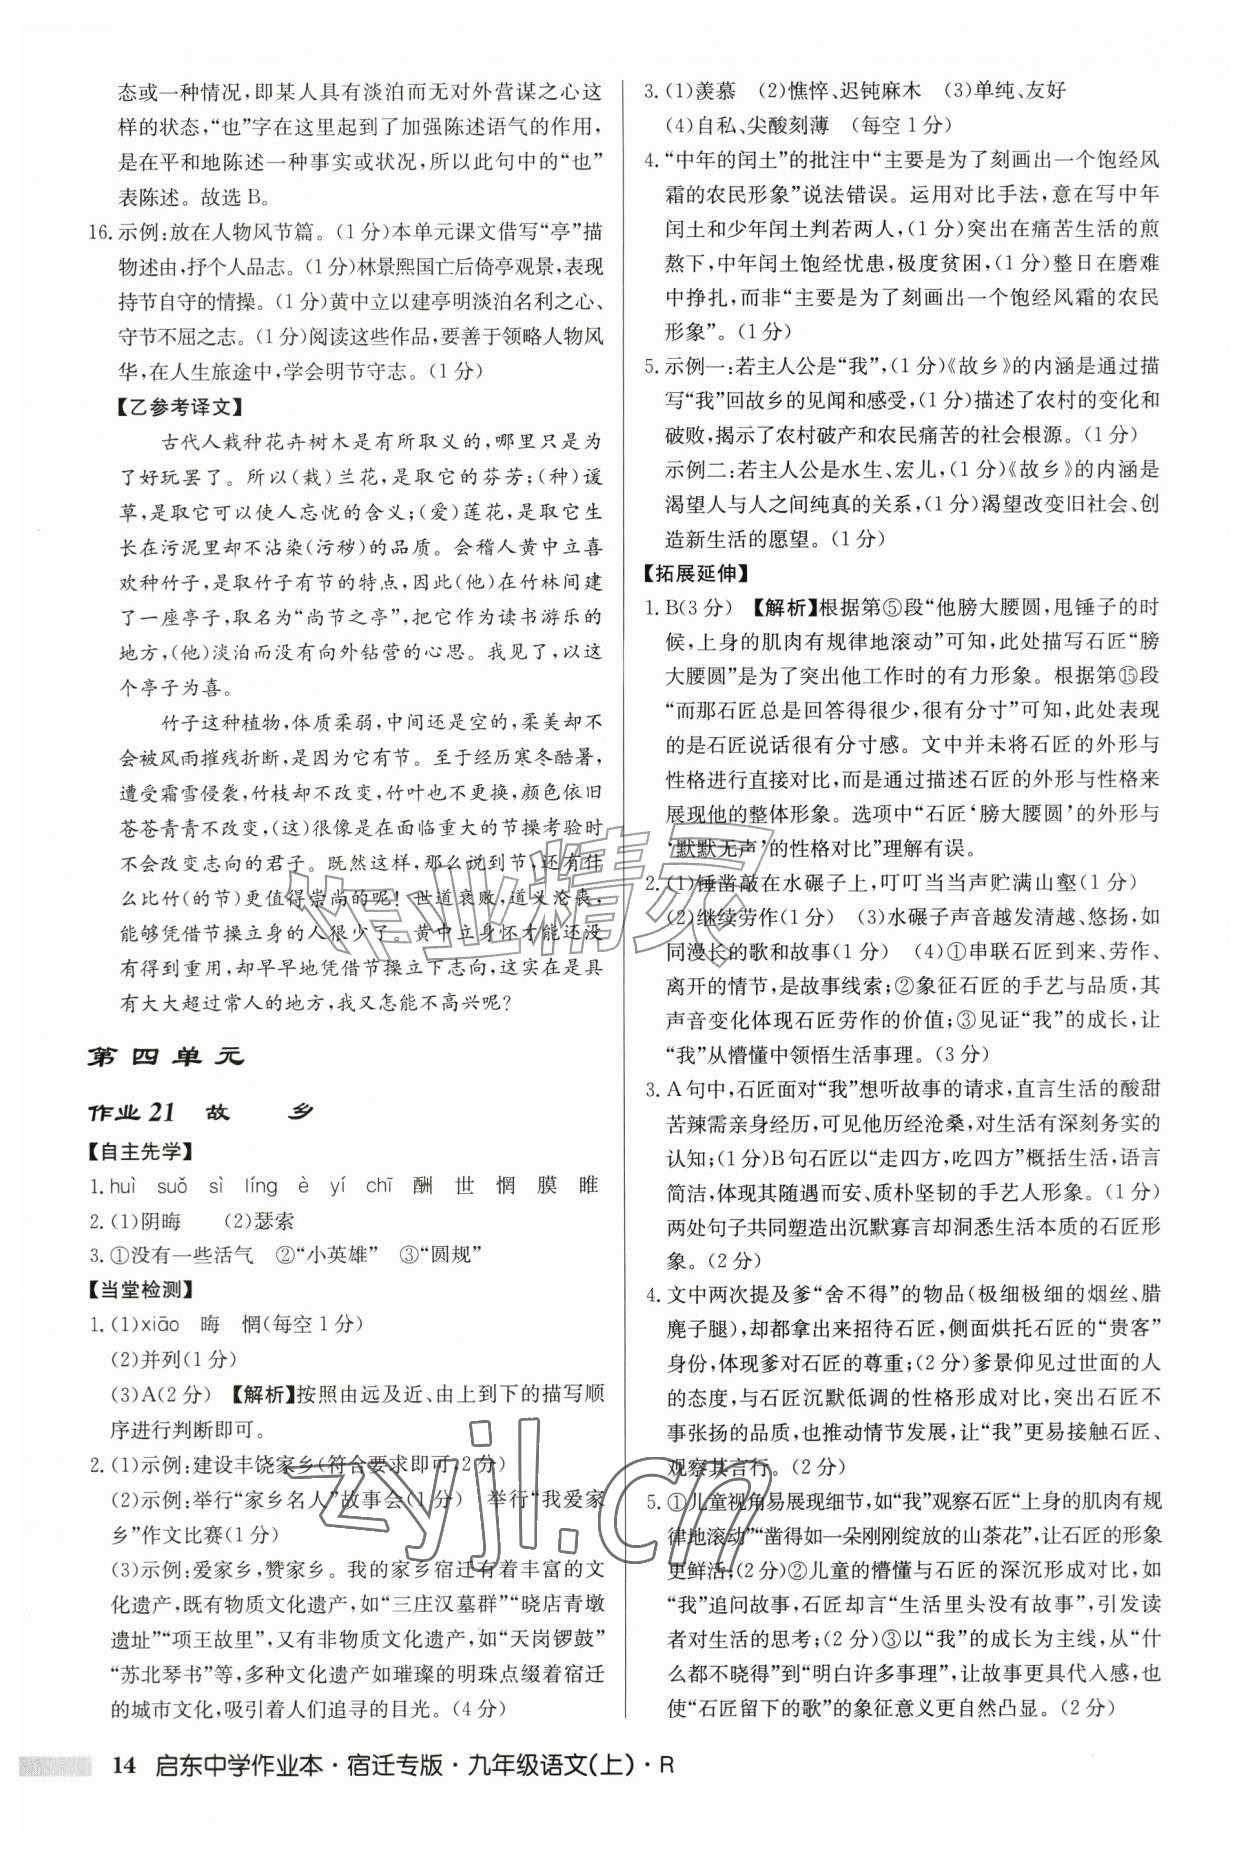 态或一种情况,即某人具有淡泊而无对外营谋之心这
样的状态,“也”字在这里起到了加强陈述语气的作用,
是在平和地陈述一种事实或状况,所以此句中的“也”
表陈述。故选B。
16. 示例:放在人物风节篇。(1分)本单元课文借写“亭”描
物述由,抒个人品志。(1分)林景熙国亡后倚亭观景,表现
持节自守的情操。(1分)黄中立以建亭明淡泊名利之心、
守节不屈之志。(1分)阅读这些作品,要善于领略人物风
华,在人生旅途中,学会明节守志。(1分)
【乙参考译文】
古代人栽种花卉树木是有所取义的,哪里只是为
了好玩罢了。所以(栽)兰花,是取它的芬芳;(种)谖
草,是取它可以使人忘忧的含义;(爱)莲花,是取它生
长在污泥里却不沾染(污秽)的品质。会稽人黄中立喜
欢种竹子,是取竹子有节的特点,因此(他)在竹林间建
了一座亭子,取名为“尚节之亭”,把它作为读书游乐的
地方,(他)淡泊而没有向外钻营的心思。我见了,以这
个亭子为喜。
竹子这种植物,体质柔弱,中间还是空的,柔美却不
会被风雨摧残折断,是因为它有节。至于经历寒冬酷暑,
遭受霜雪侵袭,竹枝却不改变,竹叶也不更换,颜色依旧
苍苍青青不改变,(这)很像是在面临重大的节操考验时
不会改变志向的君子。既然这样,那么说到节,还有什
么比竹(的节)更值得崇尚的呢!世道衰败,道义沦丧,
能够凭借节操立身的人很少了。黄中立身怀才能还没
有得到重用,却早早地凭借节操立下志向,这实在是具
有大大超过常人的地方,我又怎能不高兴呢?
第四单元
作业21 故 乡
【自主先学】
1. huì suǒ sì líng è yí chī 酬 世 惘 膜 睢
2. (1)阴晦 (2)瑟索
3. ①没有一些活气 ②“小英雄” ③“圆规”
【当堂检测】
1. (1)xiāo 晦 惘(每空1分)
(2)并列(1分)
(3)A(2分) 【解析】按照由远及近、由上到下的描写顺
序进行判断即可。
2. (1)示例:建设丰饶家乡(符合要求即可,2分)
(2)示例:举行“家乡名人”故事会(1分) 举行“我爱家
乡”作文比赛(1分)
(3)示例:爱家乡,赞家乡。我的家乡宿迁有着丰富的文
化遗产,既有物质文化遗产,如“三庄汉墓群”“晓店青墩
遗址”“项王故里”,又有非物质文化遗产,如“天岗锣鼓”
“苏北琴书”等,多种文化遗产如璀璨的明珠点缀着宿迁
的城市文化,吸引着人们追寻的目光。(4分)
3. (1)羡慕 (2)憔悴、迟钝麻木 (3)单纯、友好
(4)自私、尖酸刻薄 (每空1分)
4. “中年的闰土”的批注中“主要是为了刻画出一个饱经风
霜的农民形象”说法错误。运用对比手法,意在写中年
闰土和少年闰土判若两人,(1分)突出在痛苦生活的煎
熬下,中年闰土饱经忧患,极度贫困,(1分)整日在磨难
中挣扎,而非“主要是为了刻画出一个饱经风霜的农民
形象”。(1分)
5. 示例一:若主人公是“我”,(1分)《故乡》的内涵是通过描
写“我”回故乡的见闻和感受,(1分)描述了农村的变化和
破败,揭示了农村破产和农民痛苦的社会根源。(1分)
示例二:若主人公是水生、宏儿,(1分)《故乡》的内涵是
渴望人与人之间纯真的关系,(1分)渴望改变旧社会、创
造新生活的愿望。(1分)
【拓展延伸】
1. B(3分) 【解析】根据第⑤段“他膀大腰圆,甩锤子的时
候,上身的肌肉有规律地滚动”可知,此处描写石匠“膀
大腰圆”是为了突出他工作时的有力形象。根据第⑮段
“而那石匠总是回答得很少,很有分寸”可知,此处表现
的是石匠说话很有分寸感。文中并未将石匠的外形与
性格进行直接对比,而是通过描述石匠的外形与性格来
展现他的整体形象。选项中“石匠‘膀大腰圆’的外形与
‘默默无声’的性格对比”理解有误。
2. (1)锤凿敲在水碾子上,叮叮当当声贮满山壑(1分)
(2)继续劳作(1分) (3)水碾子声音越发清越、悠扬,如
同漫长的歌和故事(1分) (4)①串联石匠到来、劳作、
离开的情节,是故事线索;②象征石匠的手艺与品质,其
声音变化体现石匠劳作的价值;③见证“我”的成长,让
“我”从懵懂中领悟生活事理。(3分)
3. A句中,石匠面对“我”想听故事的请求,直言生活的酸甜
苦辣需亲身经历,可见他历经沧桑,对生活有深刻务实的
认知;(1分)B句石匠以“走四方,吃四方”回应生活,语言
简洁,体现其随遇而安、质朴坚韧的手艺人形象。(1分)
两处句子共同塑造出沉默寡言却洞悉生活本质的石匠形
象。(2分)
4. 文中两次提及爹“舍不得”的物品(极细极细的烟丝、腊
麂子腿),却都拿出来招待石匠,侧面烘托石匠的“贵客”
身份,体现爹对石匠的尊重;(2分)爹景仰见过世面的人
的态度,与石匠沉默低调的性格形成对比,突出石匠不
事张扬的品质,也推动情节发展,让“我”更易接触石匠、
观察其言行。(2分)
5. ①儿童视角易展现细节,如“我”观察石匠“上身的肌肉有规
律地滚动”“凿得如一朵刚刚绽放的山茶花”,让石匠的形象
更鲜活;(2分)②儿童的懵懂与石匠的深沉形成对比,如
“我”追问故事,石匠却言“生活里头没有故事”,引发读
者对生活的思考;(2分)③以“我”的成长为主线,从“什
么都不晓得”到“明白许多事理”,让故事更具代入感,也
使“石匠留下的歌”的象征意义更自然凸显。(2分)
作业精灵
zyjl.cn
14 启东中学作业本·宿迁专版·九年级语文(上)·R